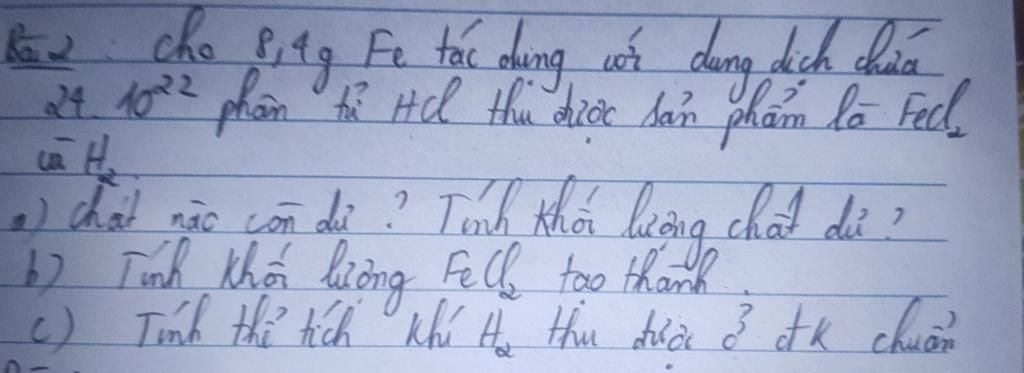 Bài 2: Cho 8,4g Fe tác dụng với dung dịch chứa
24.10²² phân tử HCl thu được sản phẩm là FeCl₂
và H₂.
a) Chất nào còn dư? Tính khối lượng chất dư?
b) Tính khối lượng FeCl₂ tạo thành.
c) Tính thể tích khí H₂ thu được ở đk chuẩn